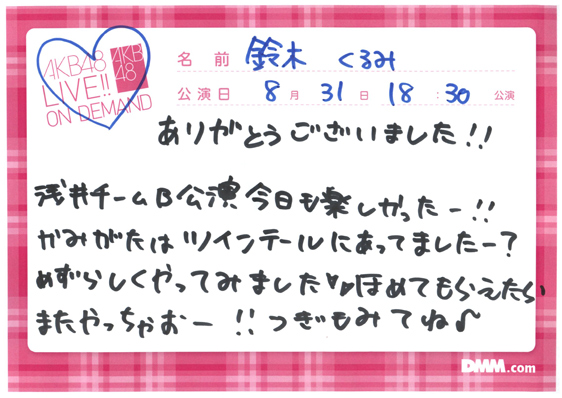 AKB48
LIVE!!
ON DEMAND
AKB
48
名前 鈴木 くるみ
公演日 8月 31日 18:30 公演
ありがとうございました!!
浅井チームB公演今日も楽しかったー!!
かみがたはツインテールにあってましたー?
めずらしくやってみました♥♥ほめてもらえたら
またやっちゃおー!!つぎもみてね♪
DMM.com